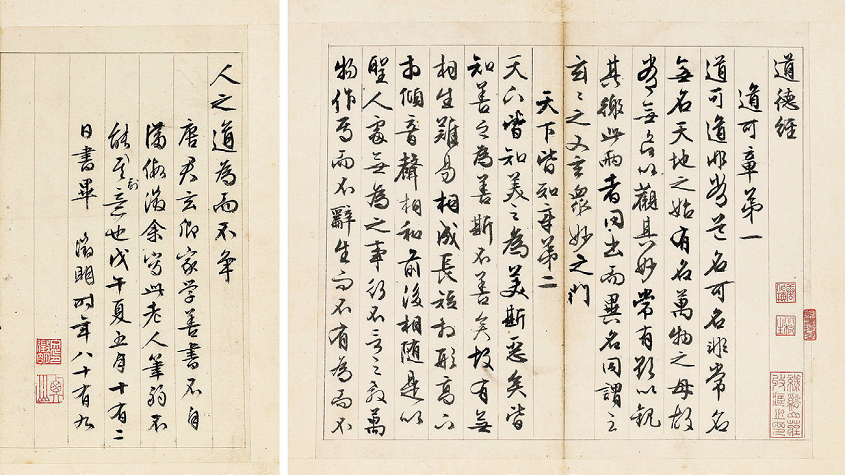 道德經
道可章第一
道可道非常道名可名非常名
無名天地之始有名萬物之母故
常無欲以觀其妙常有欲以觀
其徼此兩者同出而異名同謂之
玄〻之又玄眾妙之門
天下皆知章第二
天下皆知美之為美斯惡矣皆
知善之為善斯不善矣故有無
相生難易相成長短相形高下
相傾音聲相和前後相隨是以
聖人處無為之事行不言之教萬
物作焉而不辭生而不有為而不
人之道為而不爭
唐君玄卿家學善書不自
滿假余寫此老人筆弱不
能副其意也戊午夏五月十有二
日書畢 徵明時年八十有九